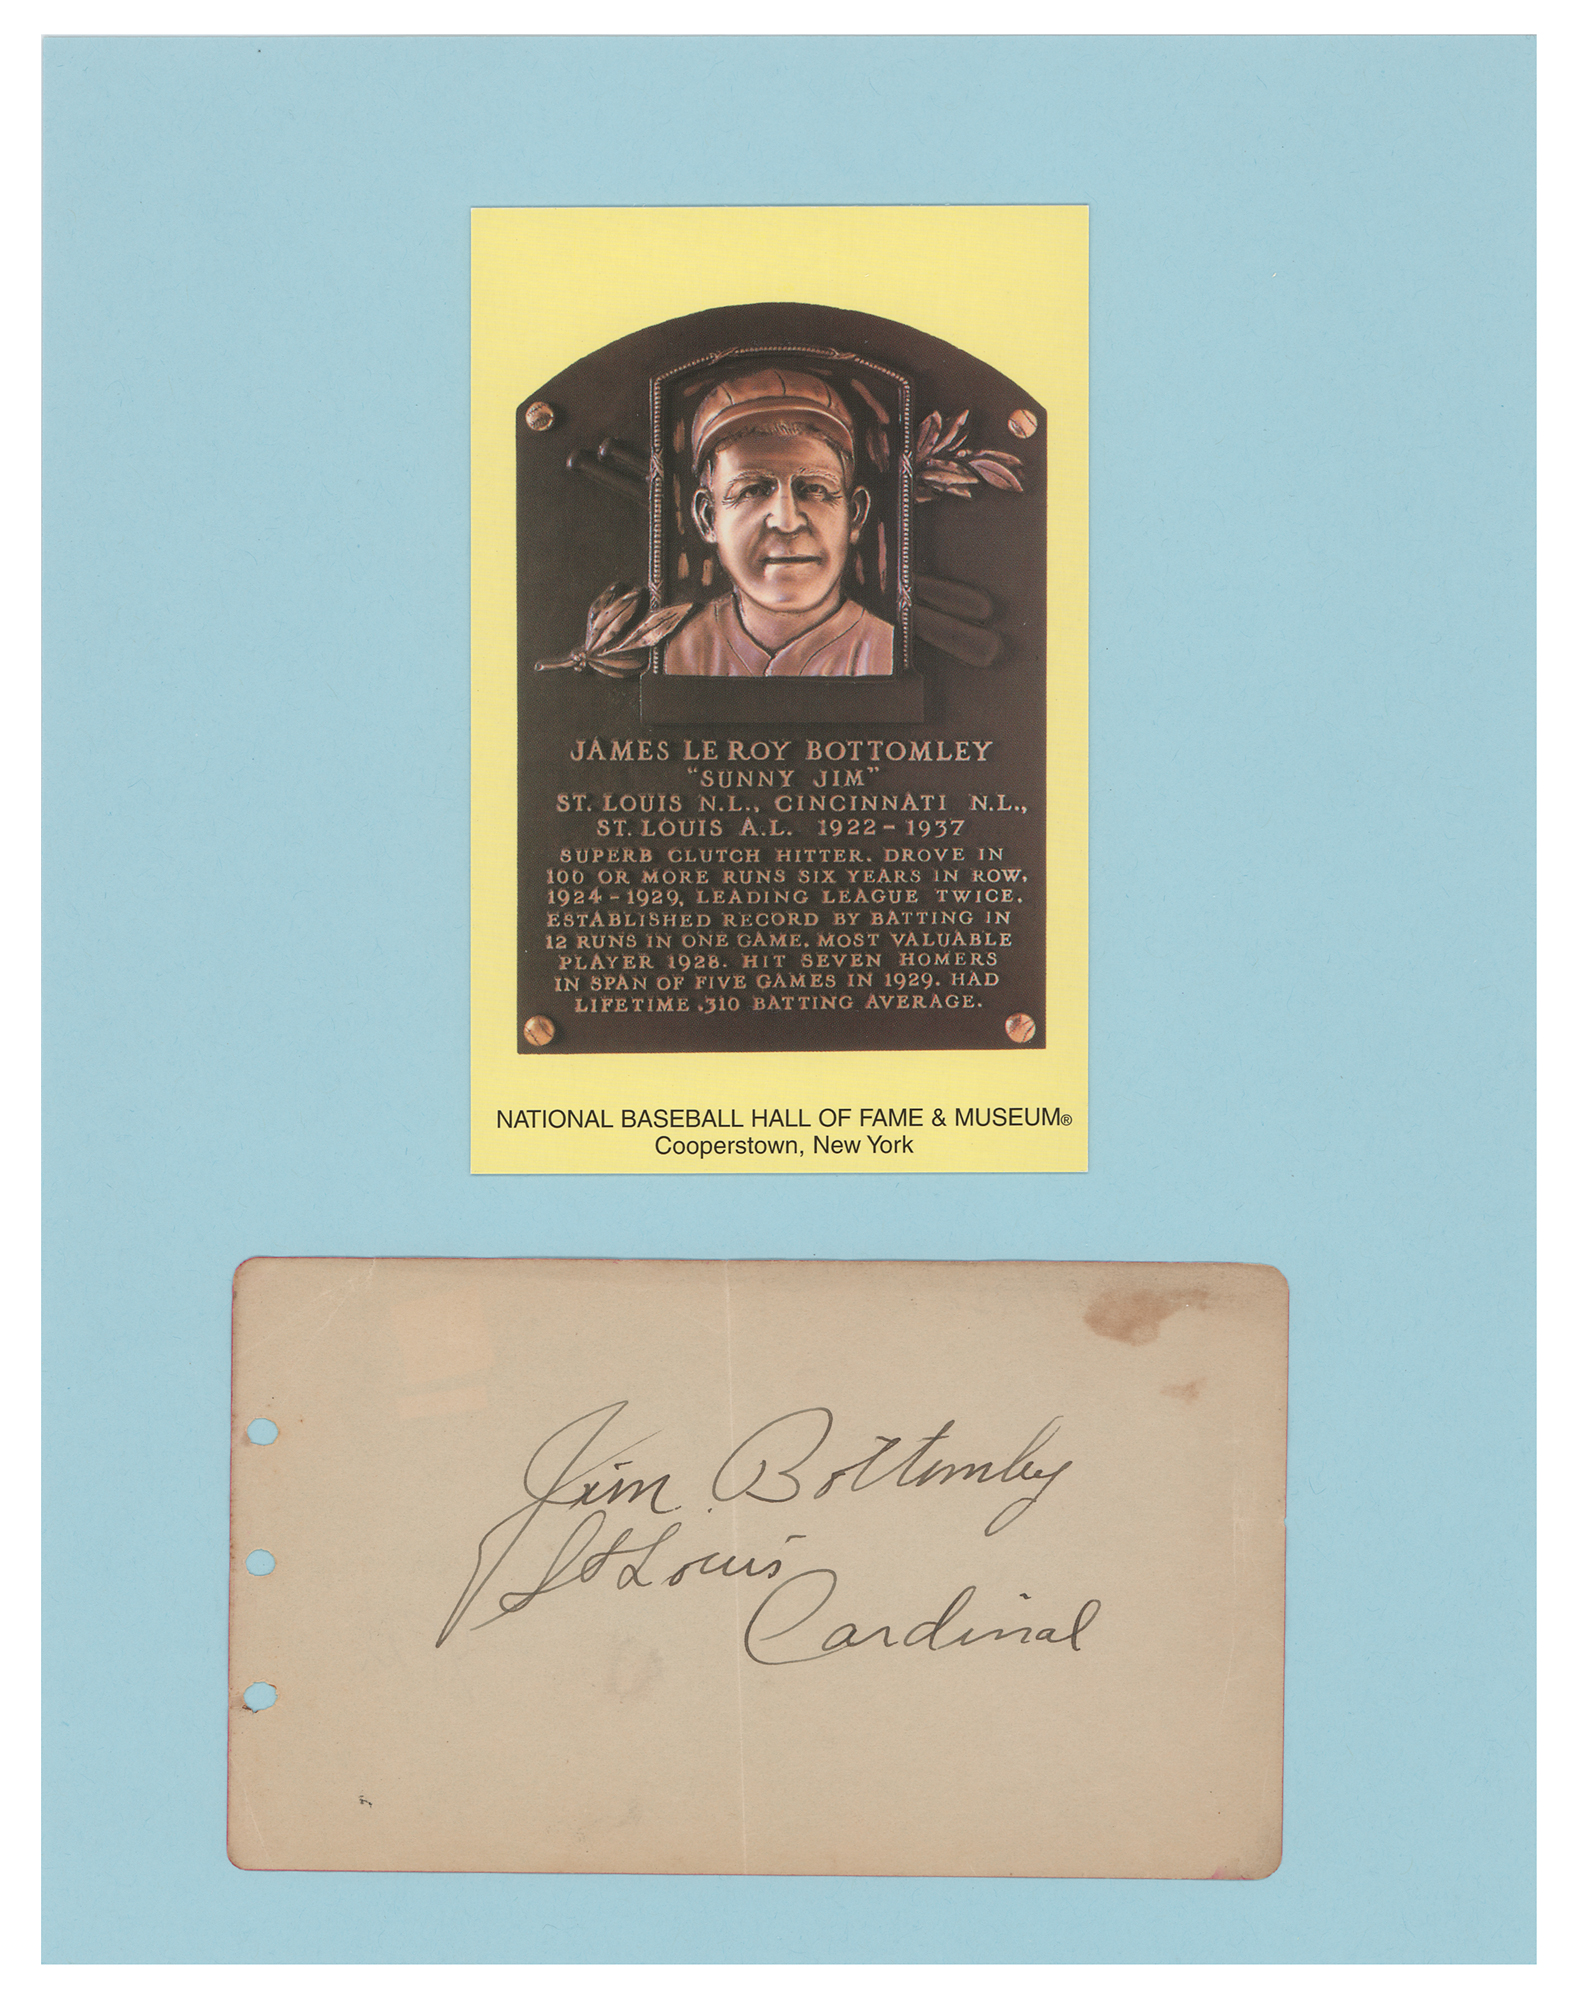 JAMES LE ROY BOTTOMLEY
"SUNNY JIM"
ST. LOUIS N.L., CINCINNATI N.L.,
ST. LOUIS A.L. 1922-1937
SUPERB CLUTCH HITTER. DROVE IN
100 OR MORE RUNS SIX YEARS IN ROW,
1924-1929, LEADING LEAGUE TWICE.
ESTABLISHED RECORD BY BATTING IN
12 RUNS IN ONE GAME. MOST VALUABLE
PLAYER 1928. HIT SEVEN HOMERS
IN SPAN OF FIVE GAMES IN 1929. HAD
LIFETIME .310 BATTING AVERAGE.
NATIONAL BASEBALL HALL OF FAME & MUSEUM®
Cooperstown, New York
Jim Bottomley
St Louis
Cardinal